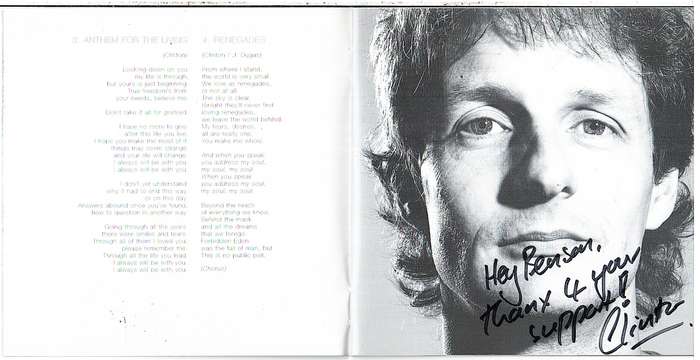 3. ANTHEM FOR THE LIVING
(Clinton)
Looking down on you
my life is through
But yours is just beginning
True freedom's from
your needs, believe me
Don't take it all for granted
I have no more to give
after this life you live
I hope you make the most of it
Things may seem strange
and your life will change
I always will be with you
I always will be with you
I don't yet understand
why it had to end this way
or on this day
Answers abound once you've found,
how to question in another way
Going through all the years
there were smiles and tears
Through all of them I loved you
please remember me
Through all the life you lead
I always will be with you
I always will be with you
4. RENEGADES
(Clinton / J.
From where I stand,
the world is very small
We love as renegades,
or not at all
The sky is clear,
loving renegades,
we leave the world behind
My fears, desires,
all are really one,
You make me whole
And when you speak
you address my soul,
my soul, my soul
When you speak
you address my soul,
my soul, my soul
Beyond the reach
of everything we know
Behind the mask
and all the dreams
that we forego
Forbidden Eden
was the fall of man, but
This is no public poll,
(Chorus)
Hey Benson,
thanx 4 your
support!
Clinton